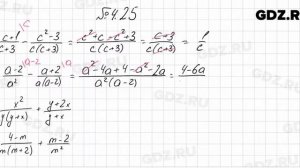 №4.25
GDZ.RU
c+1/c+3 |c - c²-3/c(c+3) = c²+c-c²+3/c(c+3) = c+3/c(c+3) = 1/c
a-2/a² - a+2/a(a-2) |a = a²-4a+4-a²-2a/a²(a-2) = 4-6a
x²/y(y+x) + y+2x/y+x
4-m/m(m+2) + m-2/m²
GDZ.RU